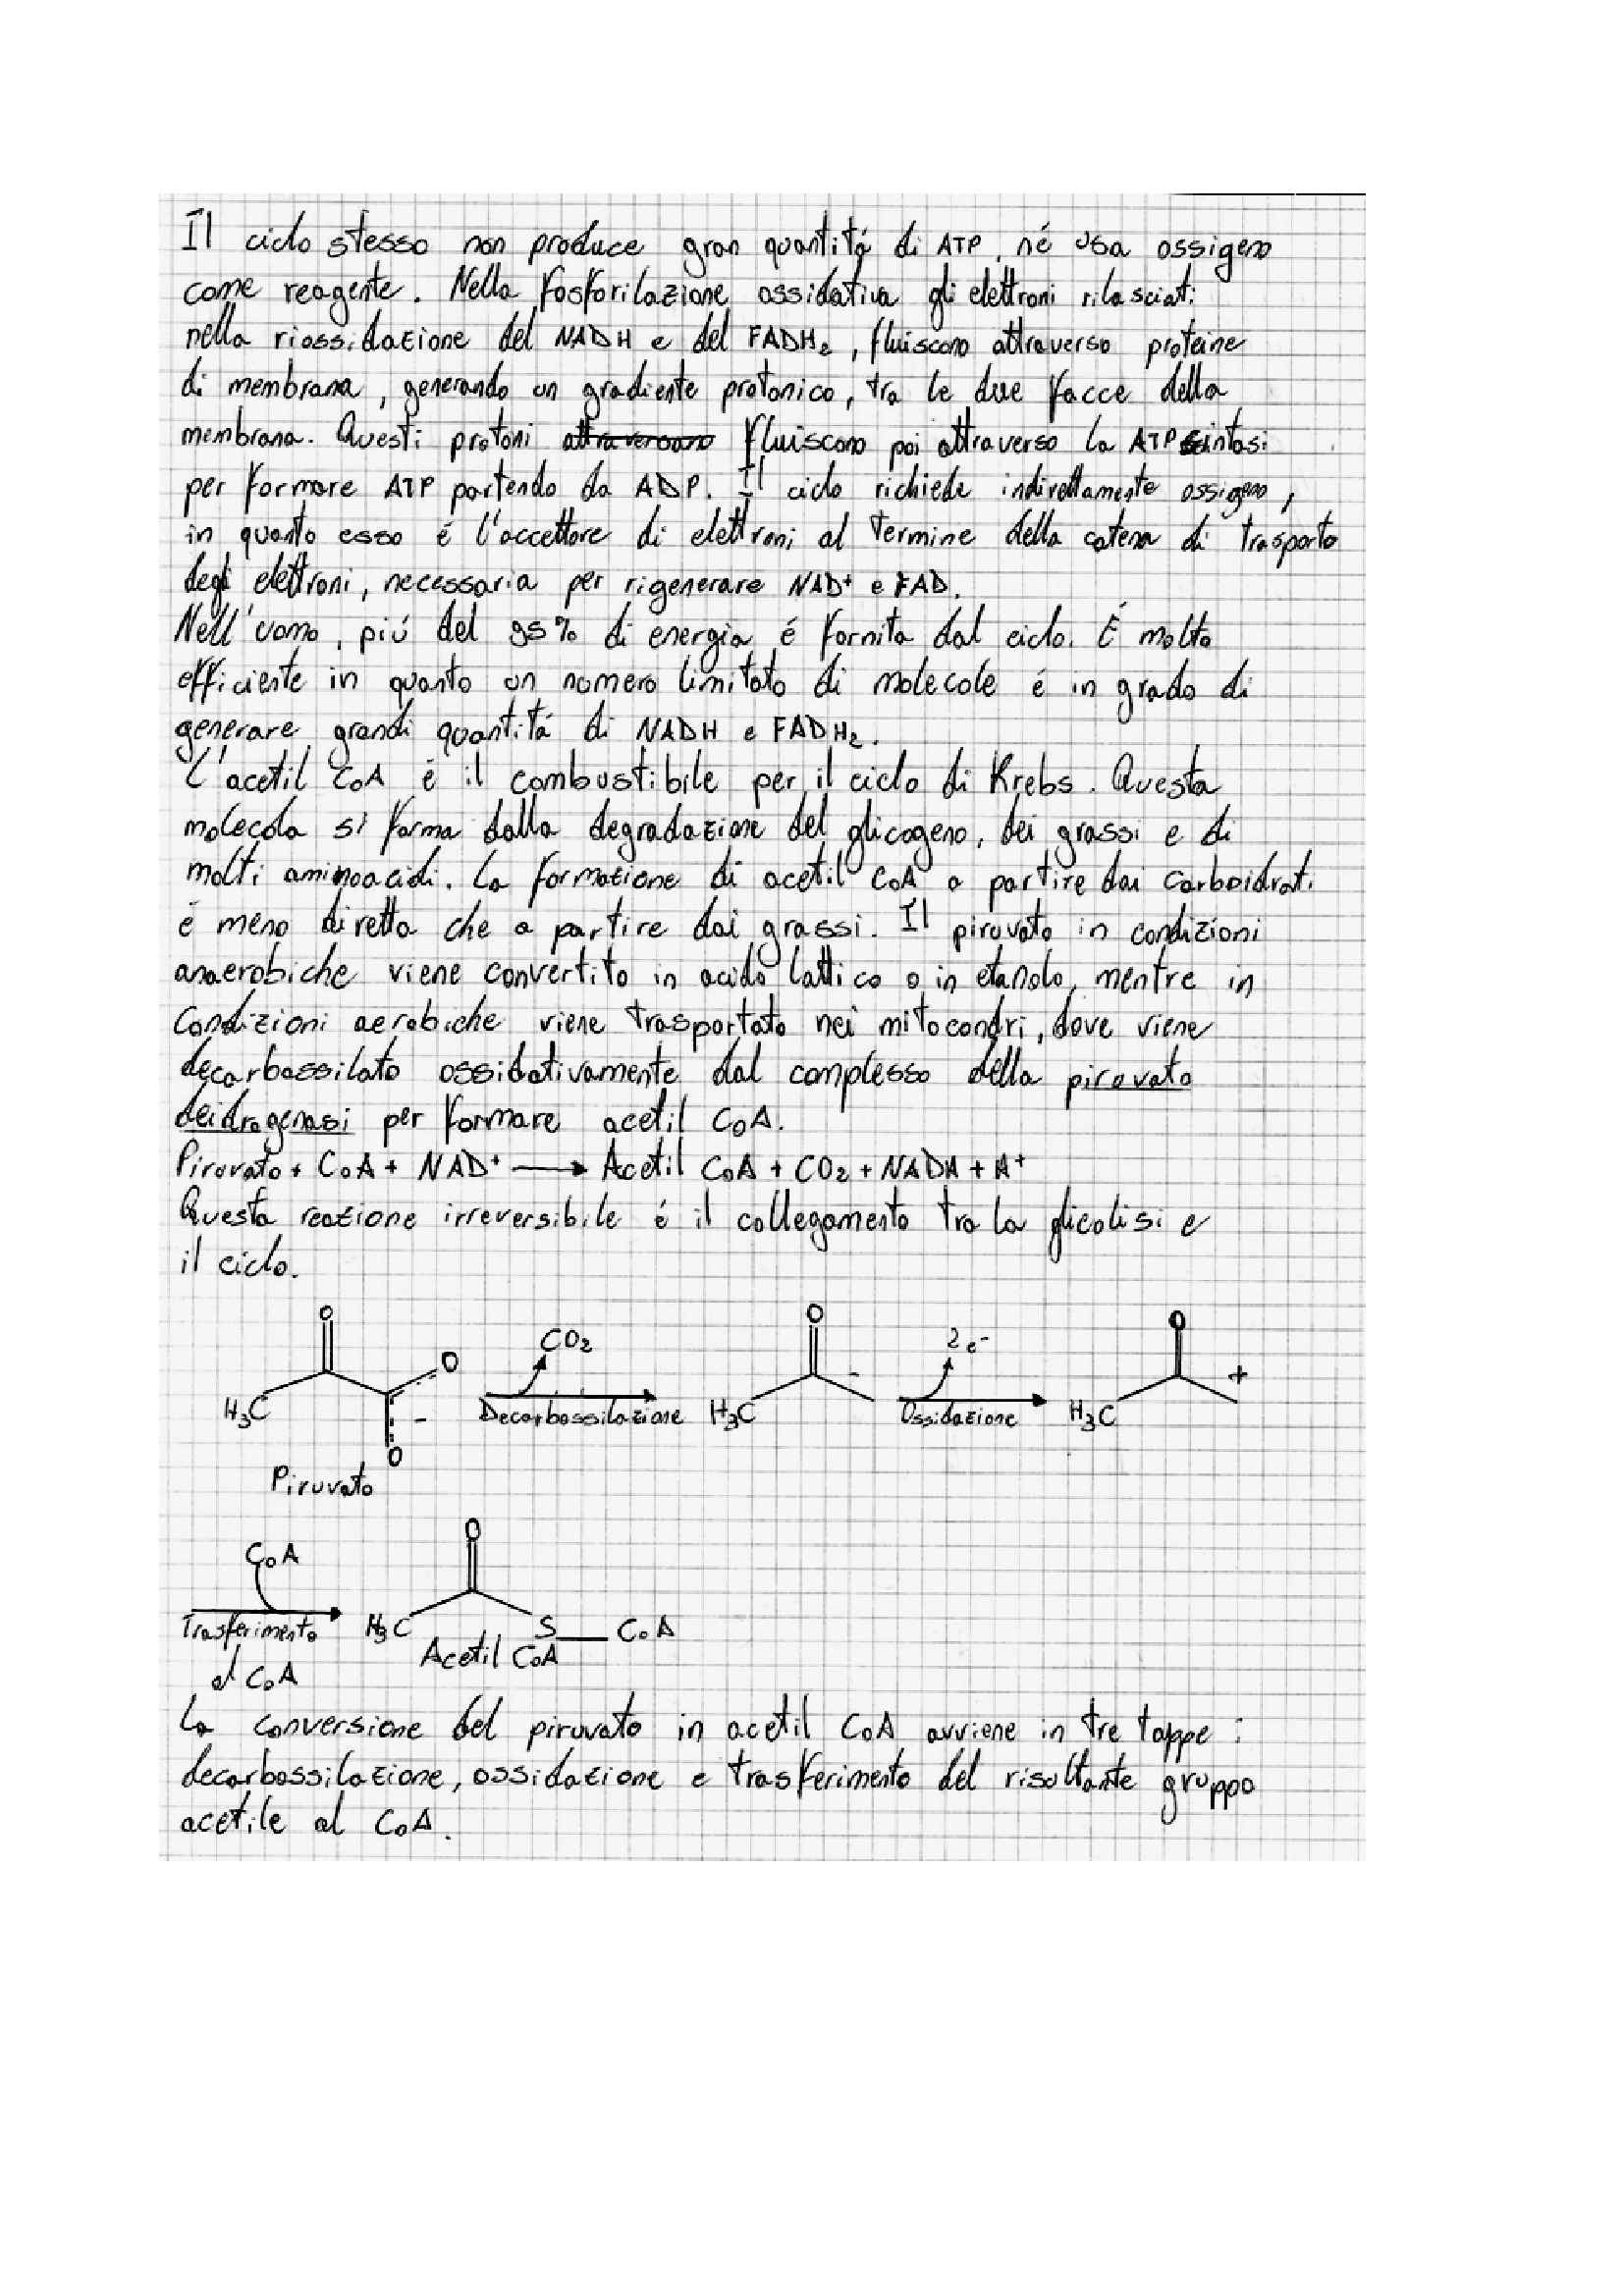 Il ciclo stesso non produce gran quantitá di ATP, né usa ossigeno
come reagente. Nella fosforilazione ossidativa gli elettroni rilasciati
nella riossidazione del NADH e del FADH₂, fluiscono attraverso proteine
di membrana, generando un gradiente protonico, tra le due facce della
membrana. Questi protoni attraversano fluiscono poi attraverso la ATP sintasi
per formare ATP partendo da ADP. Il ciclo richiede indirettamente ossigeno,
in quanto esso é l'accettore di elettroni al termine della catena di trasporto
degli elettroni, necessaria per rigenerare NAD⁺ e FAD.
Nell'uomo, piú del 95% di energia é fornita dal ciclo. É molto
efficiente in quanto un numero limitato di molecole é in grado di
generare grandi quantitá di NADH e FADH₂.
L'acetil CoA é il combustibile per il ciclo di Krebs. Questa
molecola si forma dalla degradazione del glicogeno, dei grassi e di
molti aminoacidi. La formazione di acetil CoA a partire dai carboidrati
é meno diretta che a partire dai grassi. Il piruvato in condizioni
anaerobiche viene convertito in acido lattico o in etanolo, mentre in
condizioni aerobiche viene trasportato nei mitocondri, dove viene
decarbossilato ossidativamente dal complesso della piruvato
deidrogenasi per formare acetil CoA.
Piruvato + CoA + NAD⁺ → Acetil CoA + CO₂ + NADH + H⁺
Questa reazione irreversibile é il collegamento tra la glicolisi e
il ciclo.
O O O
CO₂ 2e⁻
O - +
H₃C - Decarbossilazione H₃C Ossidazione H₃C
O
Piruvato
O
CoA
Trasferimento H₃C S — CoA
al CoA Acetil CoA
La conversione del piruvato in acetil CoA avviene in tre tappe:
decarbossilazione, ossidazione e trasferimento del risultante gruppo
acetile al CoA.